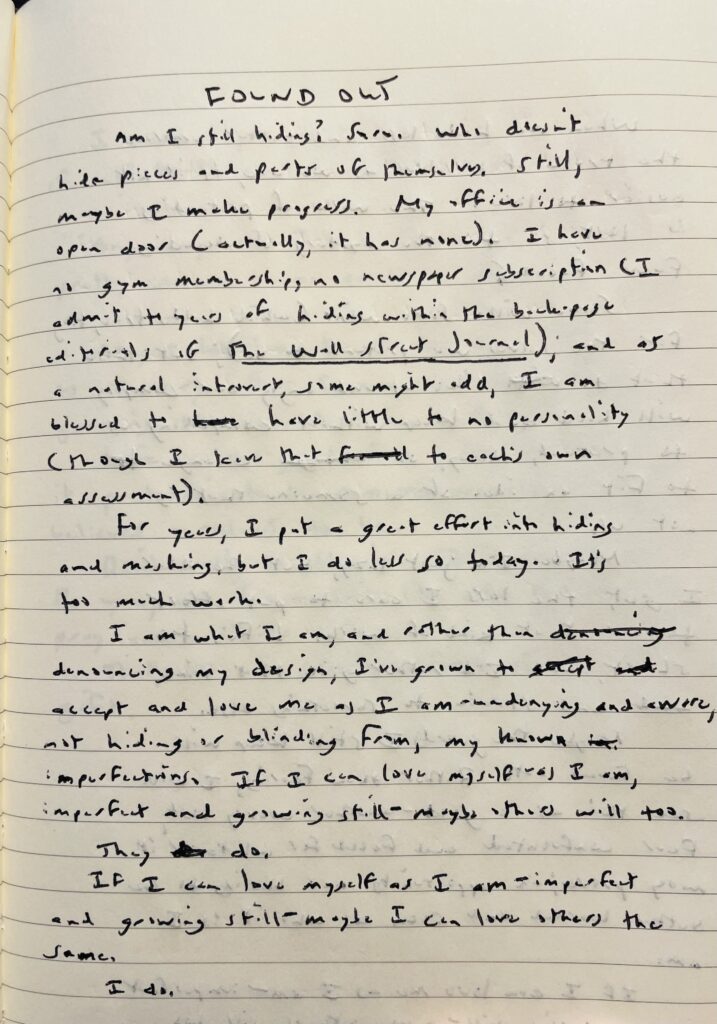 FOUND OUT
Am I still hiding? Sure. Who doesn't
hide pieces and parts of themselves. Still,
maybe I make progress. My office is an
open door (actually, it has none). I have
no gym membership, no newspaper subscription (I
admit to years of hiding within the back-page
editorials of The Wall Street Journal), and as
a natural introvert, some might add, I am
blessed to have have little to no personality
(though I leave that to each's own
assessment).
For years, I put a great effort into hiding
and masking, but I do less so today. It's
too much work.
I am what I am, and rather than denouncing
denouncing my design, I've grown to accept and
accept and love me as I am-undenying and aware,
not hiding or blinding from, my known
imperfections. If I can love myself as I am,
imperfect and growing still-maybe others will too.
They do.
If I can love myself as I am-imperfect
and growing still-maybe I can love others the
same.
I do.